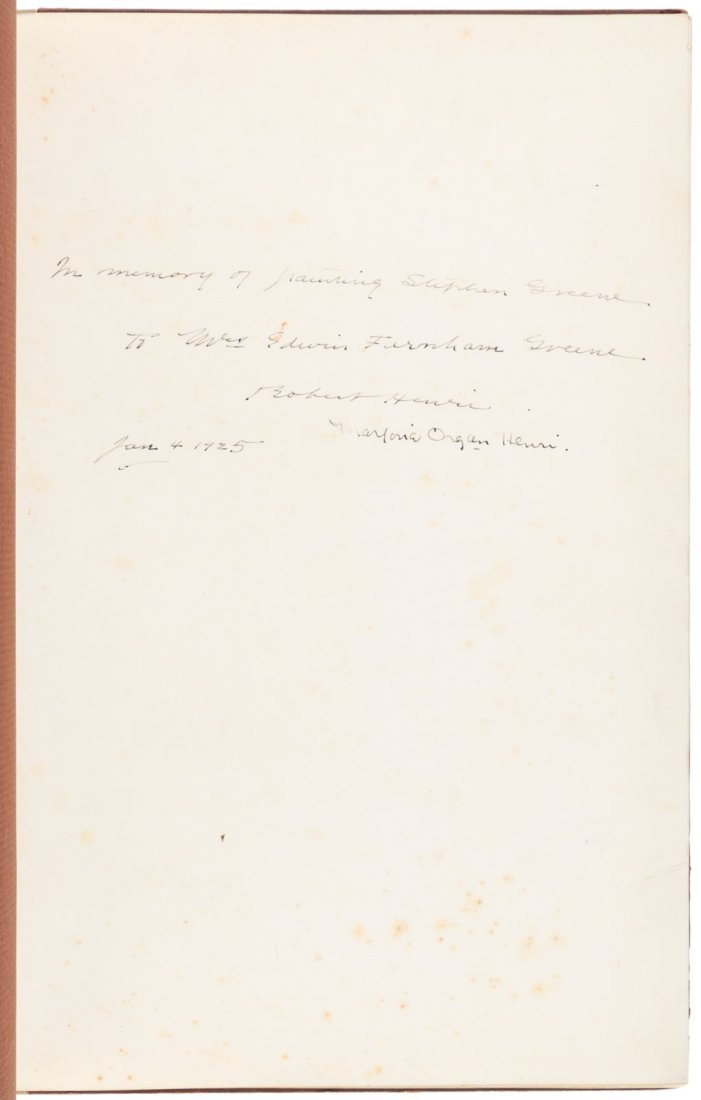 In memory of painting Stephen Greene.
to Mrs Edwin Farnham Greene.
Robert Henri.
Marjorie Organ Henri.
Jan 4 1925